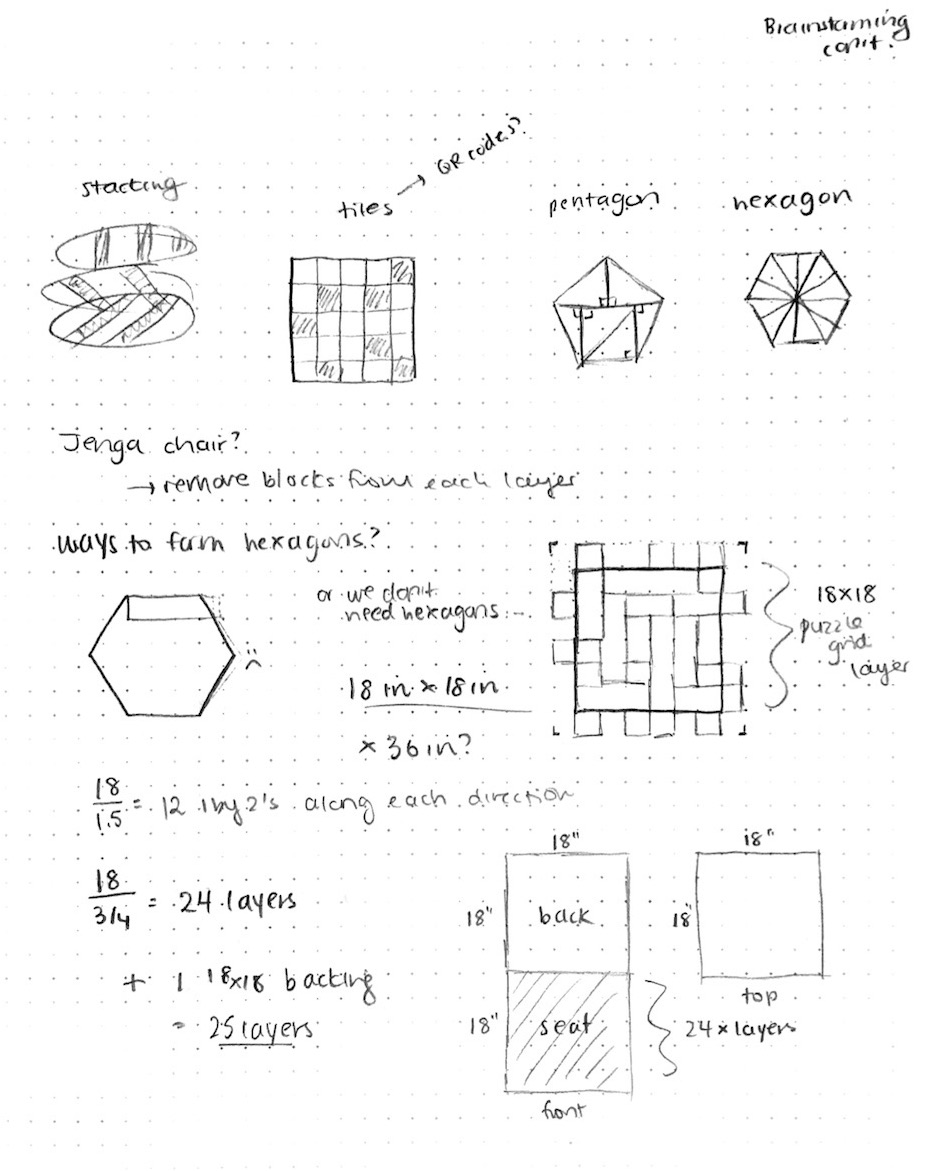 Brainstorming
cont.
stacking
tiles → QR codes?
pentagon
hexagon
Jenga chair?
→ remove blocks from each layer
ways to form hexagons?
or we don't
need hexagons...
:(
18 in × 18 in
× 36 in?
18×18
puzzle
grid
layer
18/1.5 = 12 1by2's along each direction
18/3/4 = 24 layers
+ 1 18×18 backing
= 25 layers
18"
18"
18"
back
18"
top
18"
seat
24 × layers
front